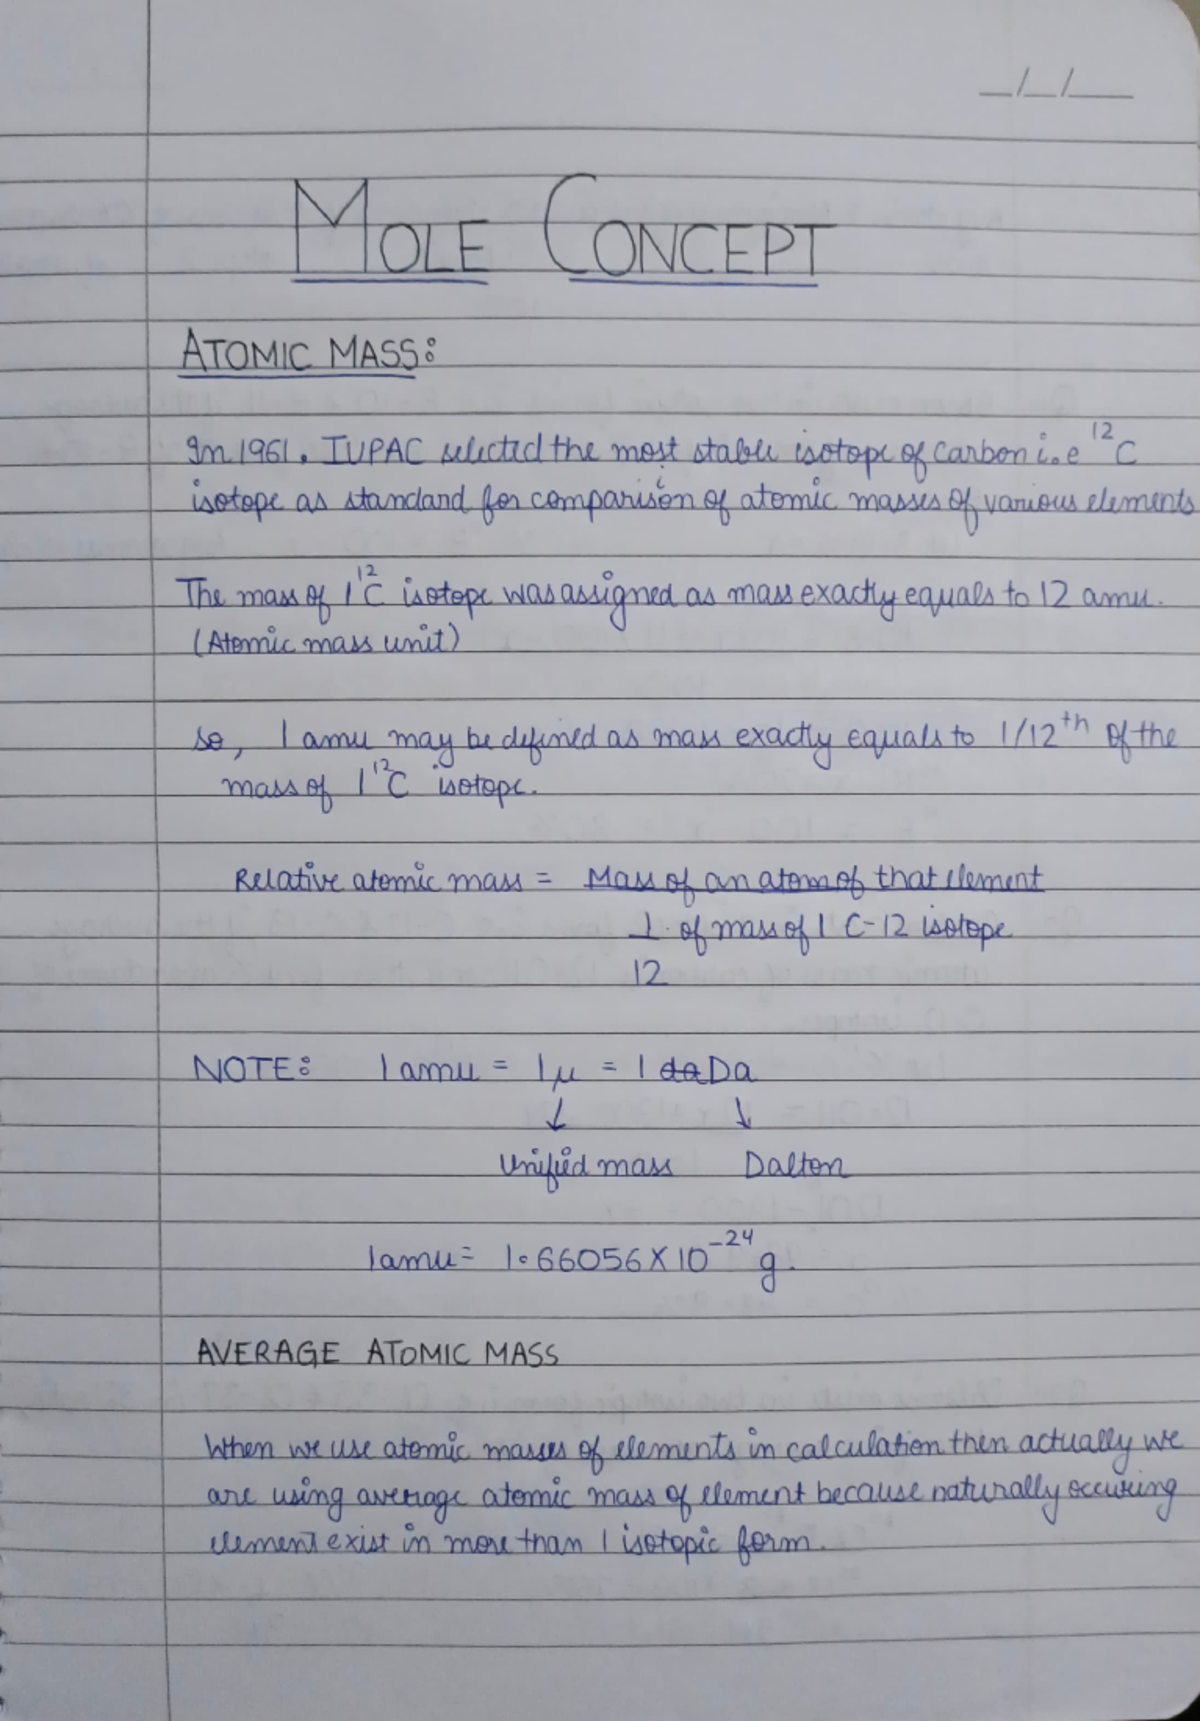 _/_/__
MOLE CONCEPT
ATOMIC MASS:
In 1961, IUPAC selected the most stable isotope of carbon i.e ¹²C
isotope as standard for comparison of atomic masses of various elements
The mass of 1 ¹²C isotope was assigned as mass exactly equals to 12 amu.
(Atomic mass unit)
so, 1 amu may be defined as mass exactly equals to 1/12ᵗʰ of the
mass of 1 ¹²C isotope.
Relative atomic mass = Mass of an atom of that element
1 of mass of 1 C-12 isotope
12
NOTE: 1 amu = 1μ = 1 da Da
↓ ↓
Unified mass Dalton
1amu = 1.66056 × 10⁻²⁴ g.
AVERAGE ATOMIC MASS
When we use atomic masses of elements in calculation then actually we
are using average atomic mass of element because naturally occuring
element exist in more than 1 isotopic form.